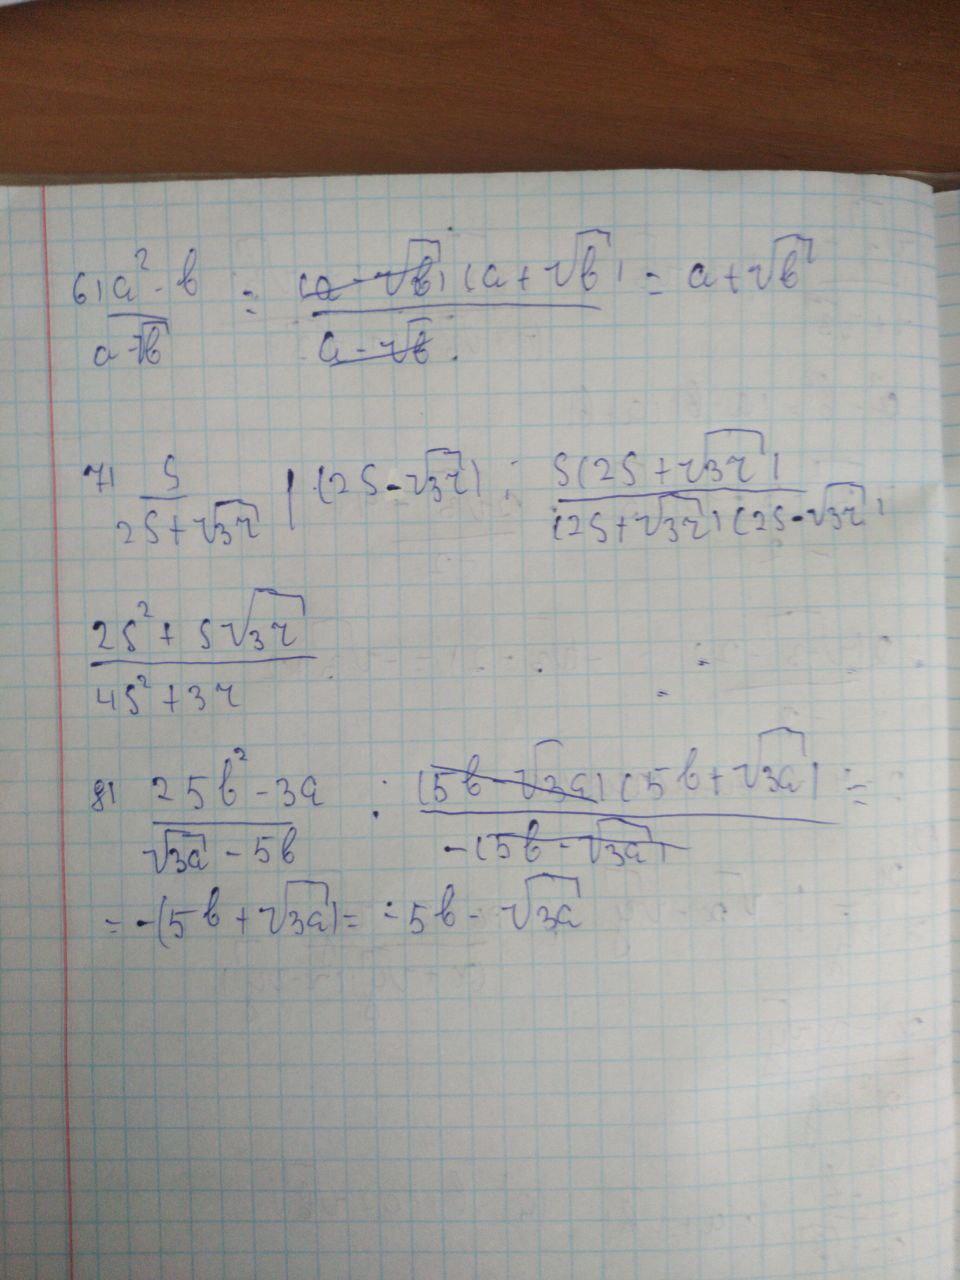 6) a² - b / a - √b = (a - √b)(a + √b) / a - √b = a + √b
7) S / 2S + √3r | (2S - √3r) = S(2S + √3r) / (2S + √3r)(2S - √3r)
2S² + S√3r / 4S² + 3r
8) 25b² - 3a / √3a - 5b = (5b - √3a)(5b + √3a) / -(5b - √3a) =
= -(5b + √3a) = -5b - √3a